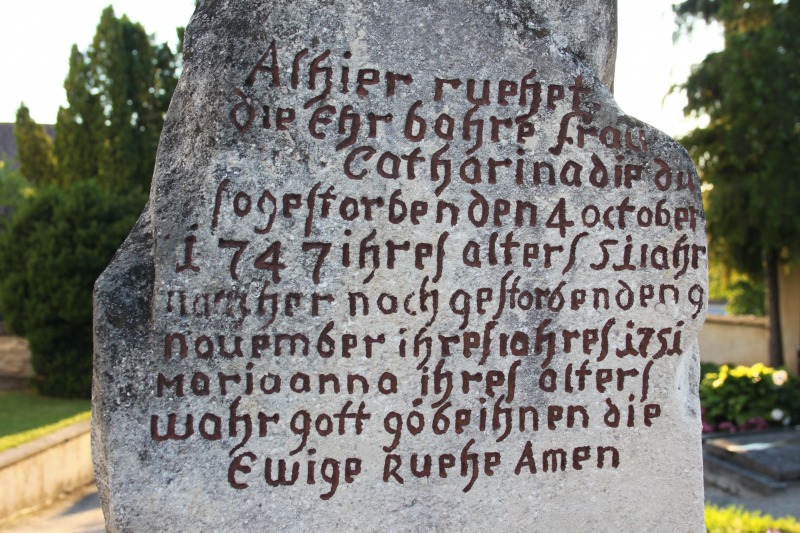 Alhier ruehet
die Ehr bahre frau
Catharina die du
so gestorben den 4 october
1747 ihres alters 51 iahr
nacher noch gestorben den 9
november ihres iahres 1751
Mariaanna ihres alters
wahr gott göbe ihnen die
Ewige Ruehe Amen